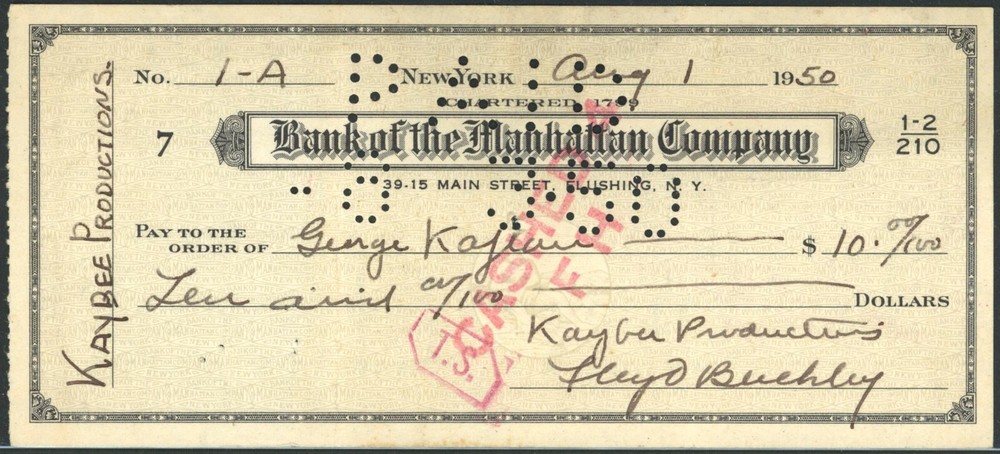 KAYBEE PRODUCTIONS.
No. 1-A NEW YORK Aug 1 1950
CHARTERED 1799
7 Bank of the Manhattan Company 1-2/210
39-15 MAIN STREET, FLUSHING, N. Y.
PAY TO THE
ORDER OF George $ 10.00/100
Ten and 00/100 DOLLARS
Kaybee Productions
Lloyd Buchley
CASHED
F H
T.S.
PAID